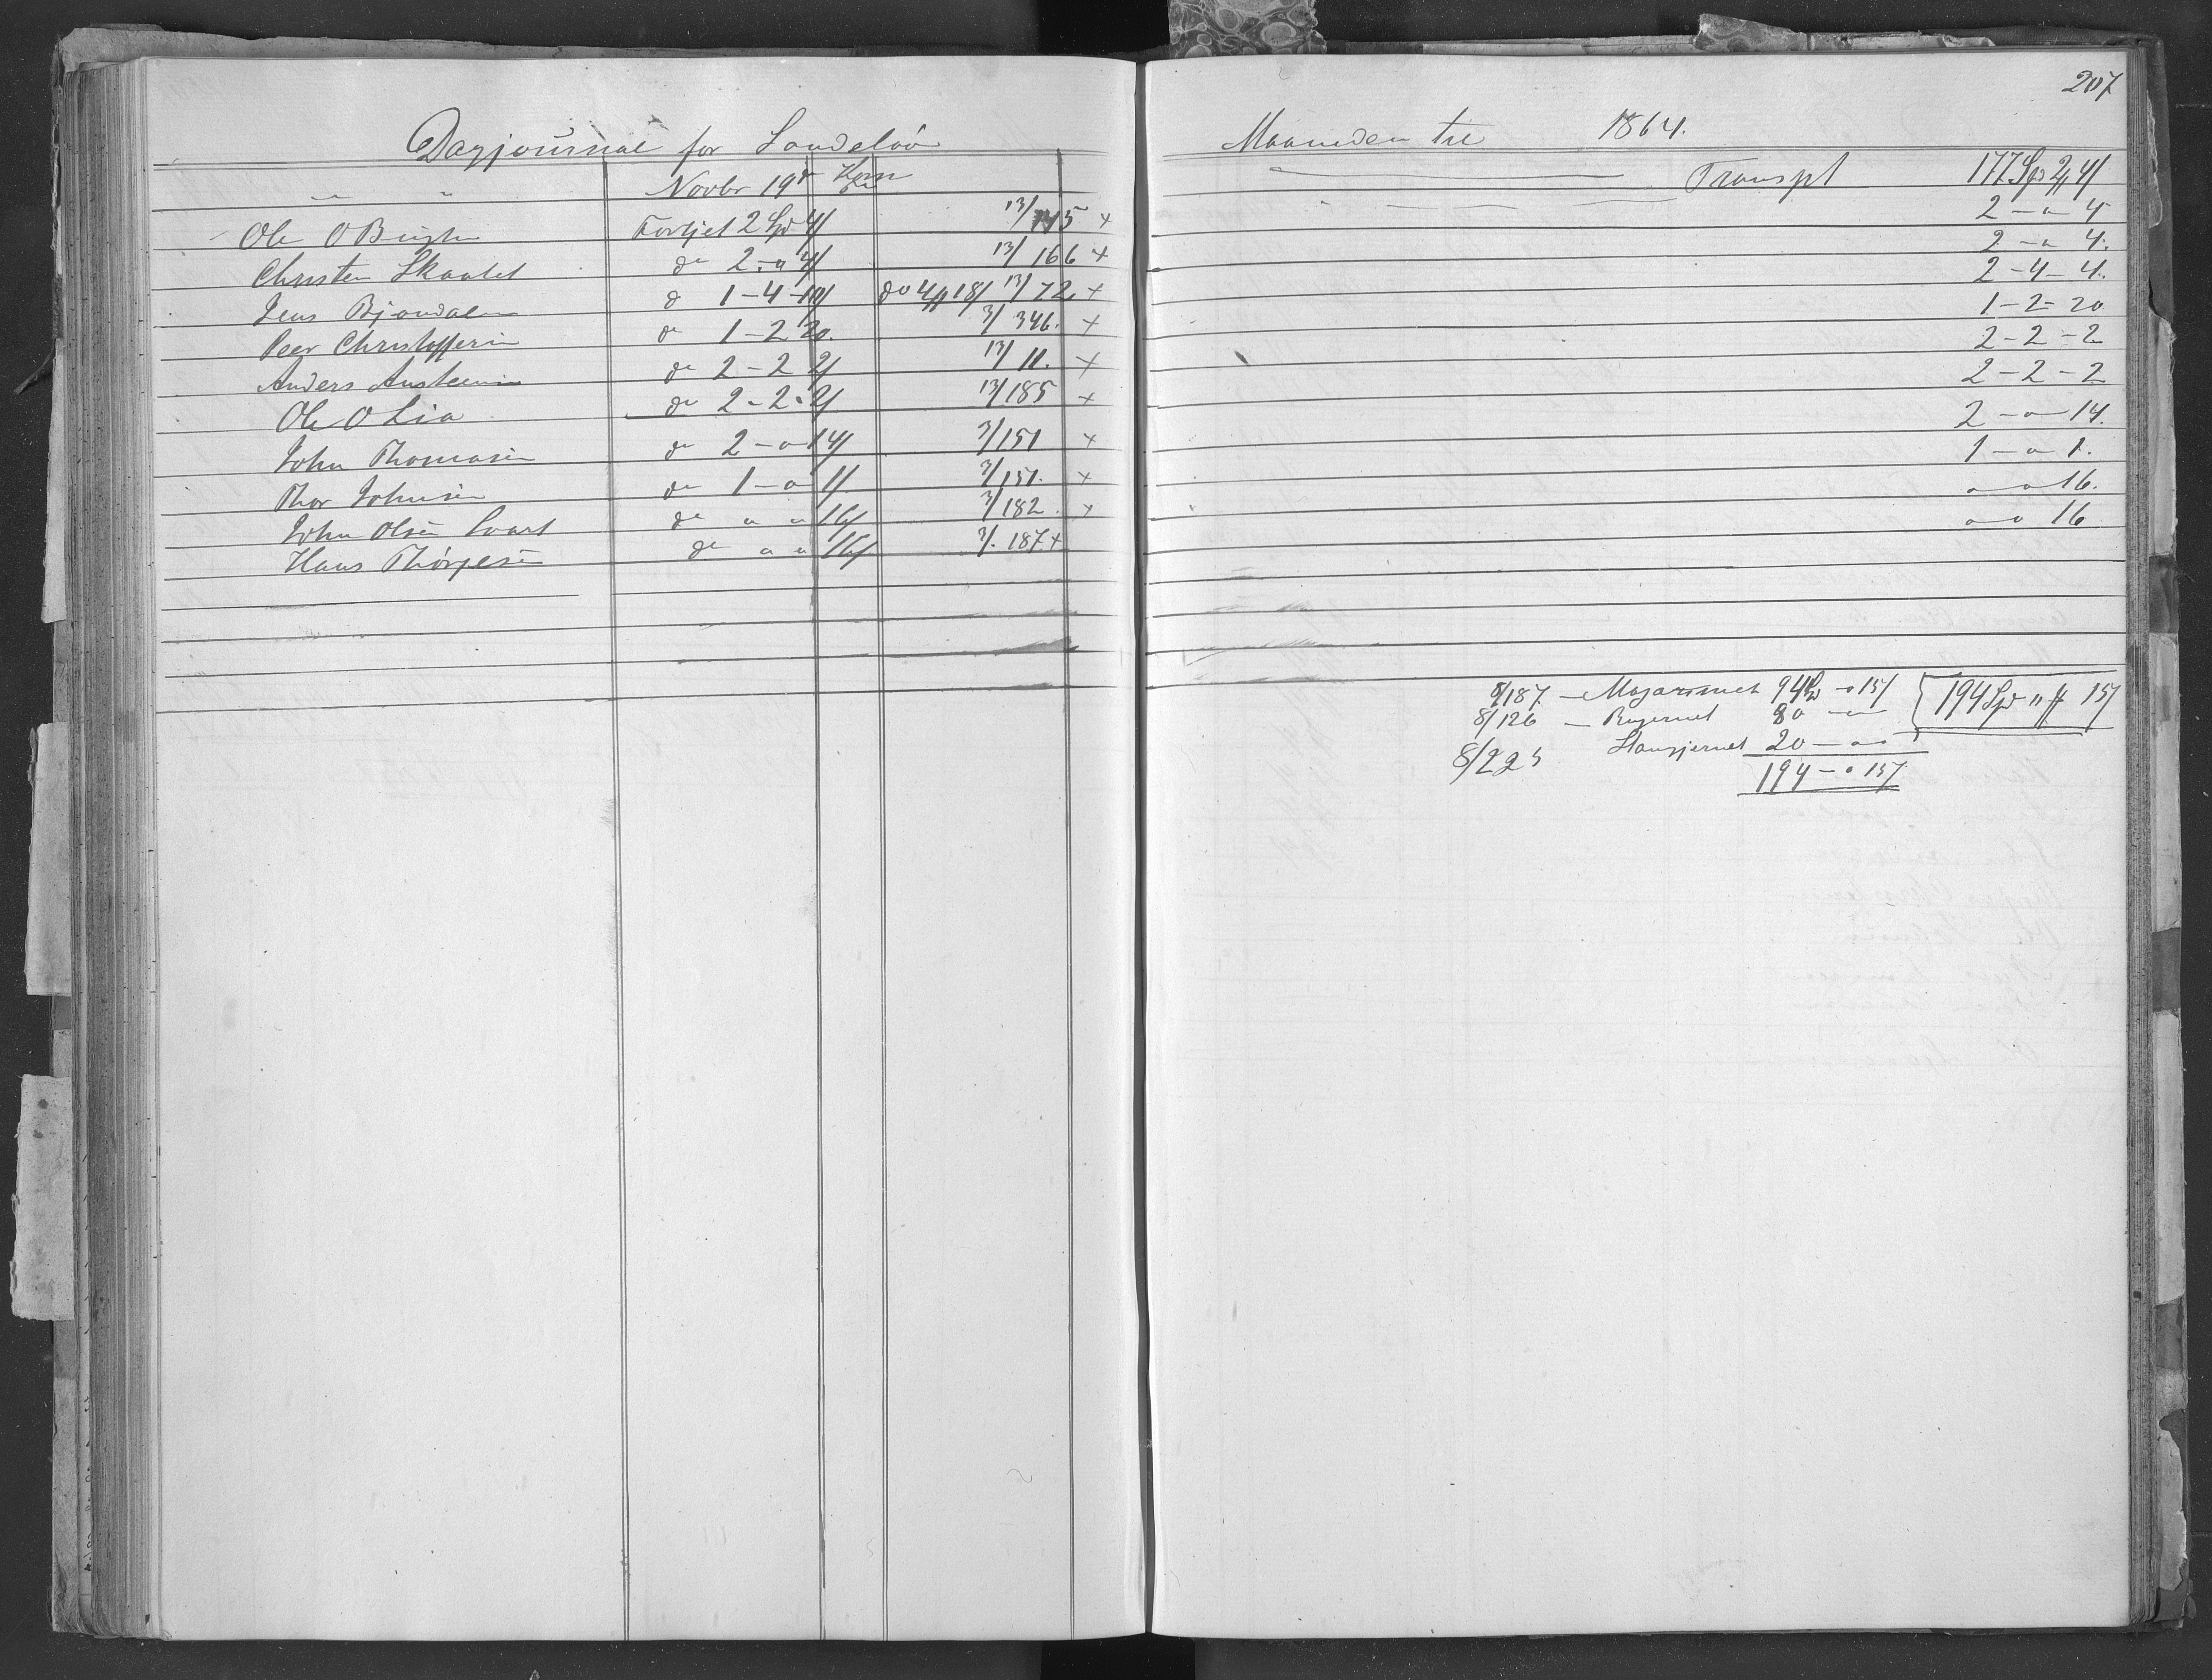 207
Dagjournal for Sandeløv Maaneden til 1864.
" " Novbr 19de Korn Transpt 177 Spd 2 # 4/
Ole O Fortjet 2 Spd 4/ 13/145 x 2 - " 4
Christen Skaatet do 2 - " 4/ 13/166 x 2 - " 4.
Jens Bjøndalen do 1 - 4 - 10/ do 4 # 18/ 13/72 x 2 - 4 - 4.
Peer Christoffersen do 1 - 2 20. 3/346. x 1 - 2 - 20
Anders Austensen do 2 - 2 2/ 13/11. x 2 - 2 - 2
Ole O Lia do 2 - 2 - 2/ 13/185 x 2 - 2 - 2
John Thomasen do 2 - " 14/ 3/151 x 2 - " 14.
Thor Johnsen do 1 - " 1/ 3/151. x 1 - " 1.
John Olsen Svart do " " 16/ 3/182. x " " 16.
Hans Thorgesen do " " 16/ 3/. 187. x " " 16
8/187 - 94 Spd - " 15/ 194 Spd " # 15/
8/126 - 80 - " "
8/225 20 - " "
194 - " 15/